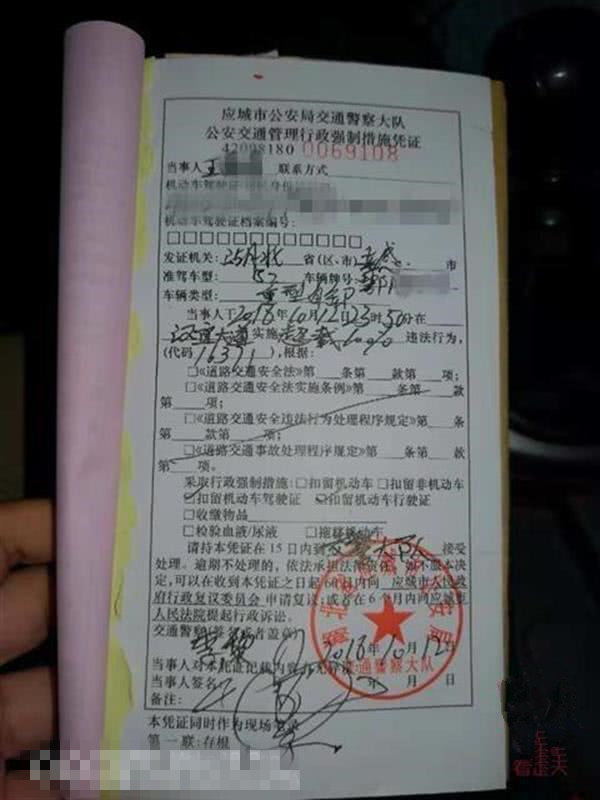 应城市公安局交通警察大队
公安交通管理行政强制措施凭证
42098180 0069108
当事人王 联系方式
机动车驾驶证
机动车驾驶证档案编号:
□□□□□□□□□□□□
发证机关: 湖北 省(区、市) 孝感 市
准驾车型: B2 车辆牌号: 鄂
车辆类型: 重型自卸
当事人于2018年10月12日23时50分在
汉宜大道实施超载100% 违法行为,
(代码16371),根据:
□《道路交通安全法》第___条第___款第___项;
□《道路交通安全法实施条例》第___条第___款
第___项;
□《道路交通安全违法行为处理程序规定》第___条
第___款第___项;
□《道路交通事故处理程序规定》第___条第___款
第___项。
采取行政强制措施: □扣留机动车 □扣留非机动车
☑扣留机动车驾驶证 ☑扣留机动车行驶证
□收缴物品
□检验血液/尿液 □拖移机动车
请持本凭证在15日内到 交警大队 接受
处理。逾期不处理的,依法承担法律责任。如不服本决
定,可以在收到本凭证之日起60日内向 应城市人民政
府行政复议委员会 申请复议;或者在6个月内向应城市
人民法院提起行政诉讼。
交通警察(签名或者盖章)
2018年10月12日
交通警察大队
当事人对本凭证记载内容有无异议
当事人签名: 年 月 日
备注:
本凭证同时作为现场笔录
第一联:存根
看歪天